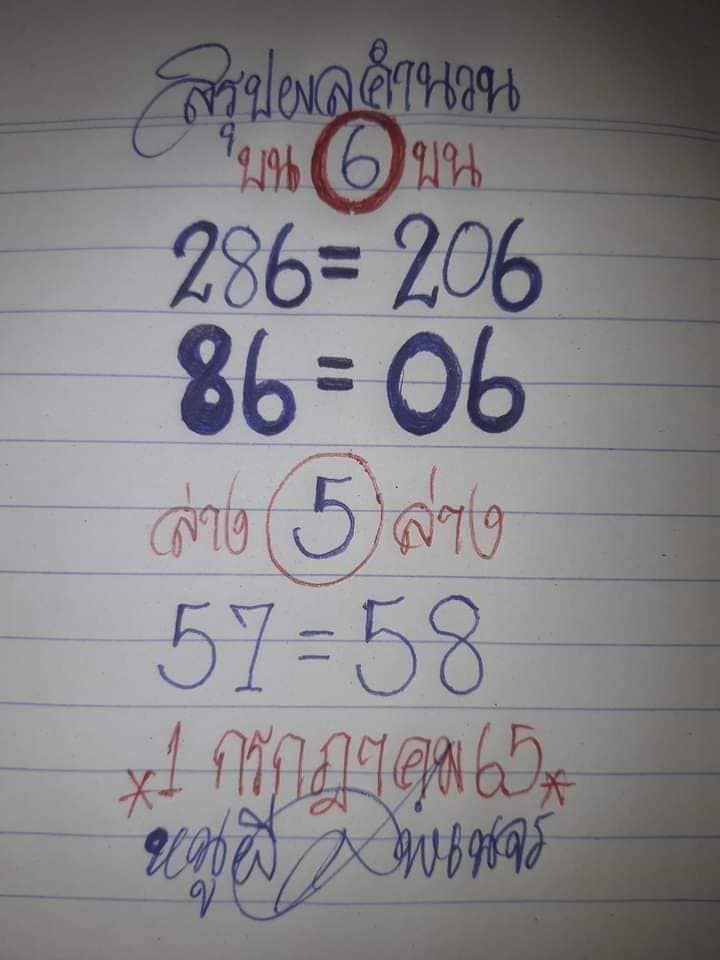 สรุปผลคำนวน
บน 6 บน
286 = 206
86 = 06
ล่าง 5 ล่าง
57 = 58
*1 กรกฎาคม 65*